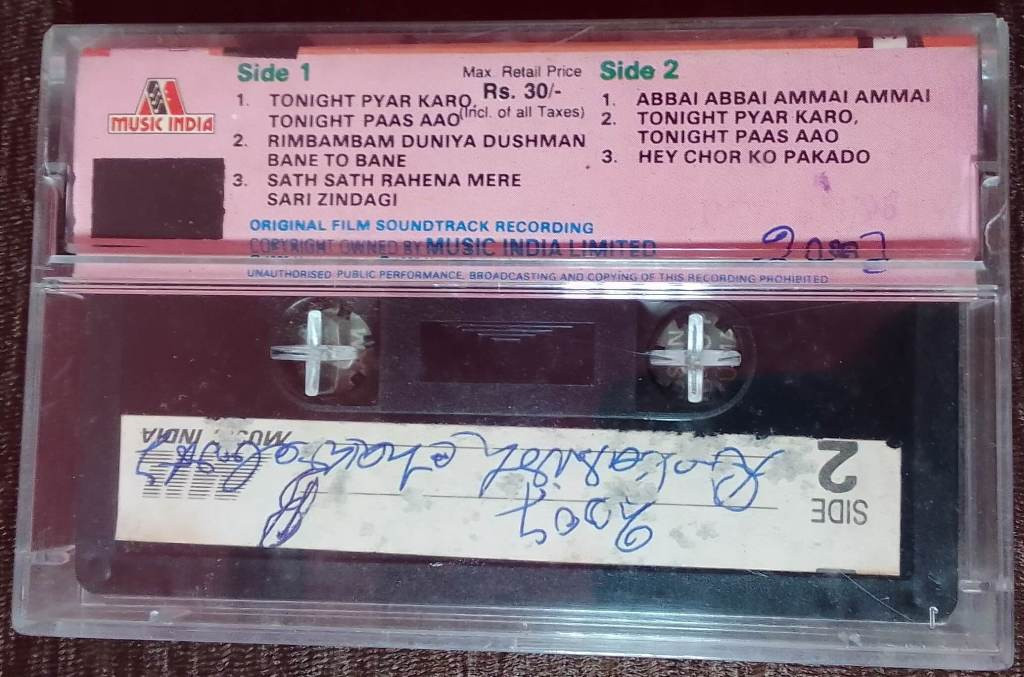 Side 1
Max. Retail Price
Rs. 30/-
(Incl. of all Taxes)
1. TONIGHT PYAR KARO,
TONIGHT PAAS AAO
2. RIMBAMBAM DUNIYA DUSHMAN
BANE TO BANE
3. SATH SATH RAHENA MERE
SARI ZINDAGI
Side 2
1. ABBAI ABBAI AMMAI AMMAI
2. TONIGHT PYAR KARO,
TONIGHT PAAS AAO
3. HEY CHOR KO PAKADO
MUSIC INDIA
ORIGINAL FILM SOUNDTRACK RECORDING
COPYRIGHT OWNED BY MUSIC INDIA LIMITED
UNAUTHORISED PUBLIC PERFORMANCE, BROADCASTING AND COPYING OF THIS RECORDING PROHIBITED
SIDE
2
2007
MUSIC INDIA